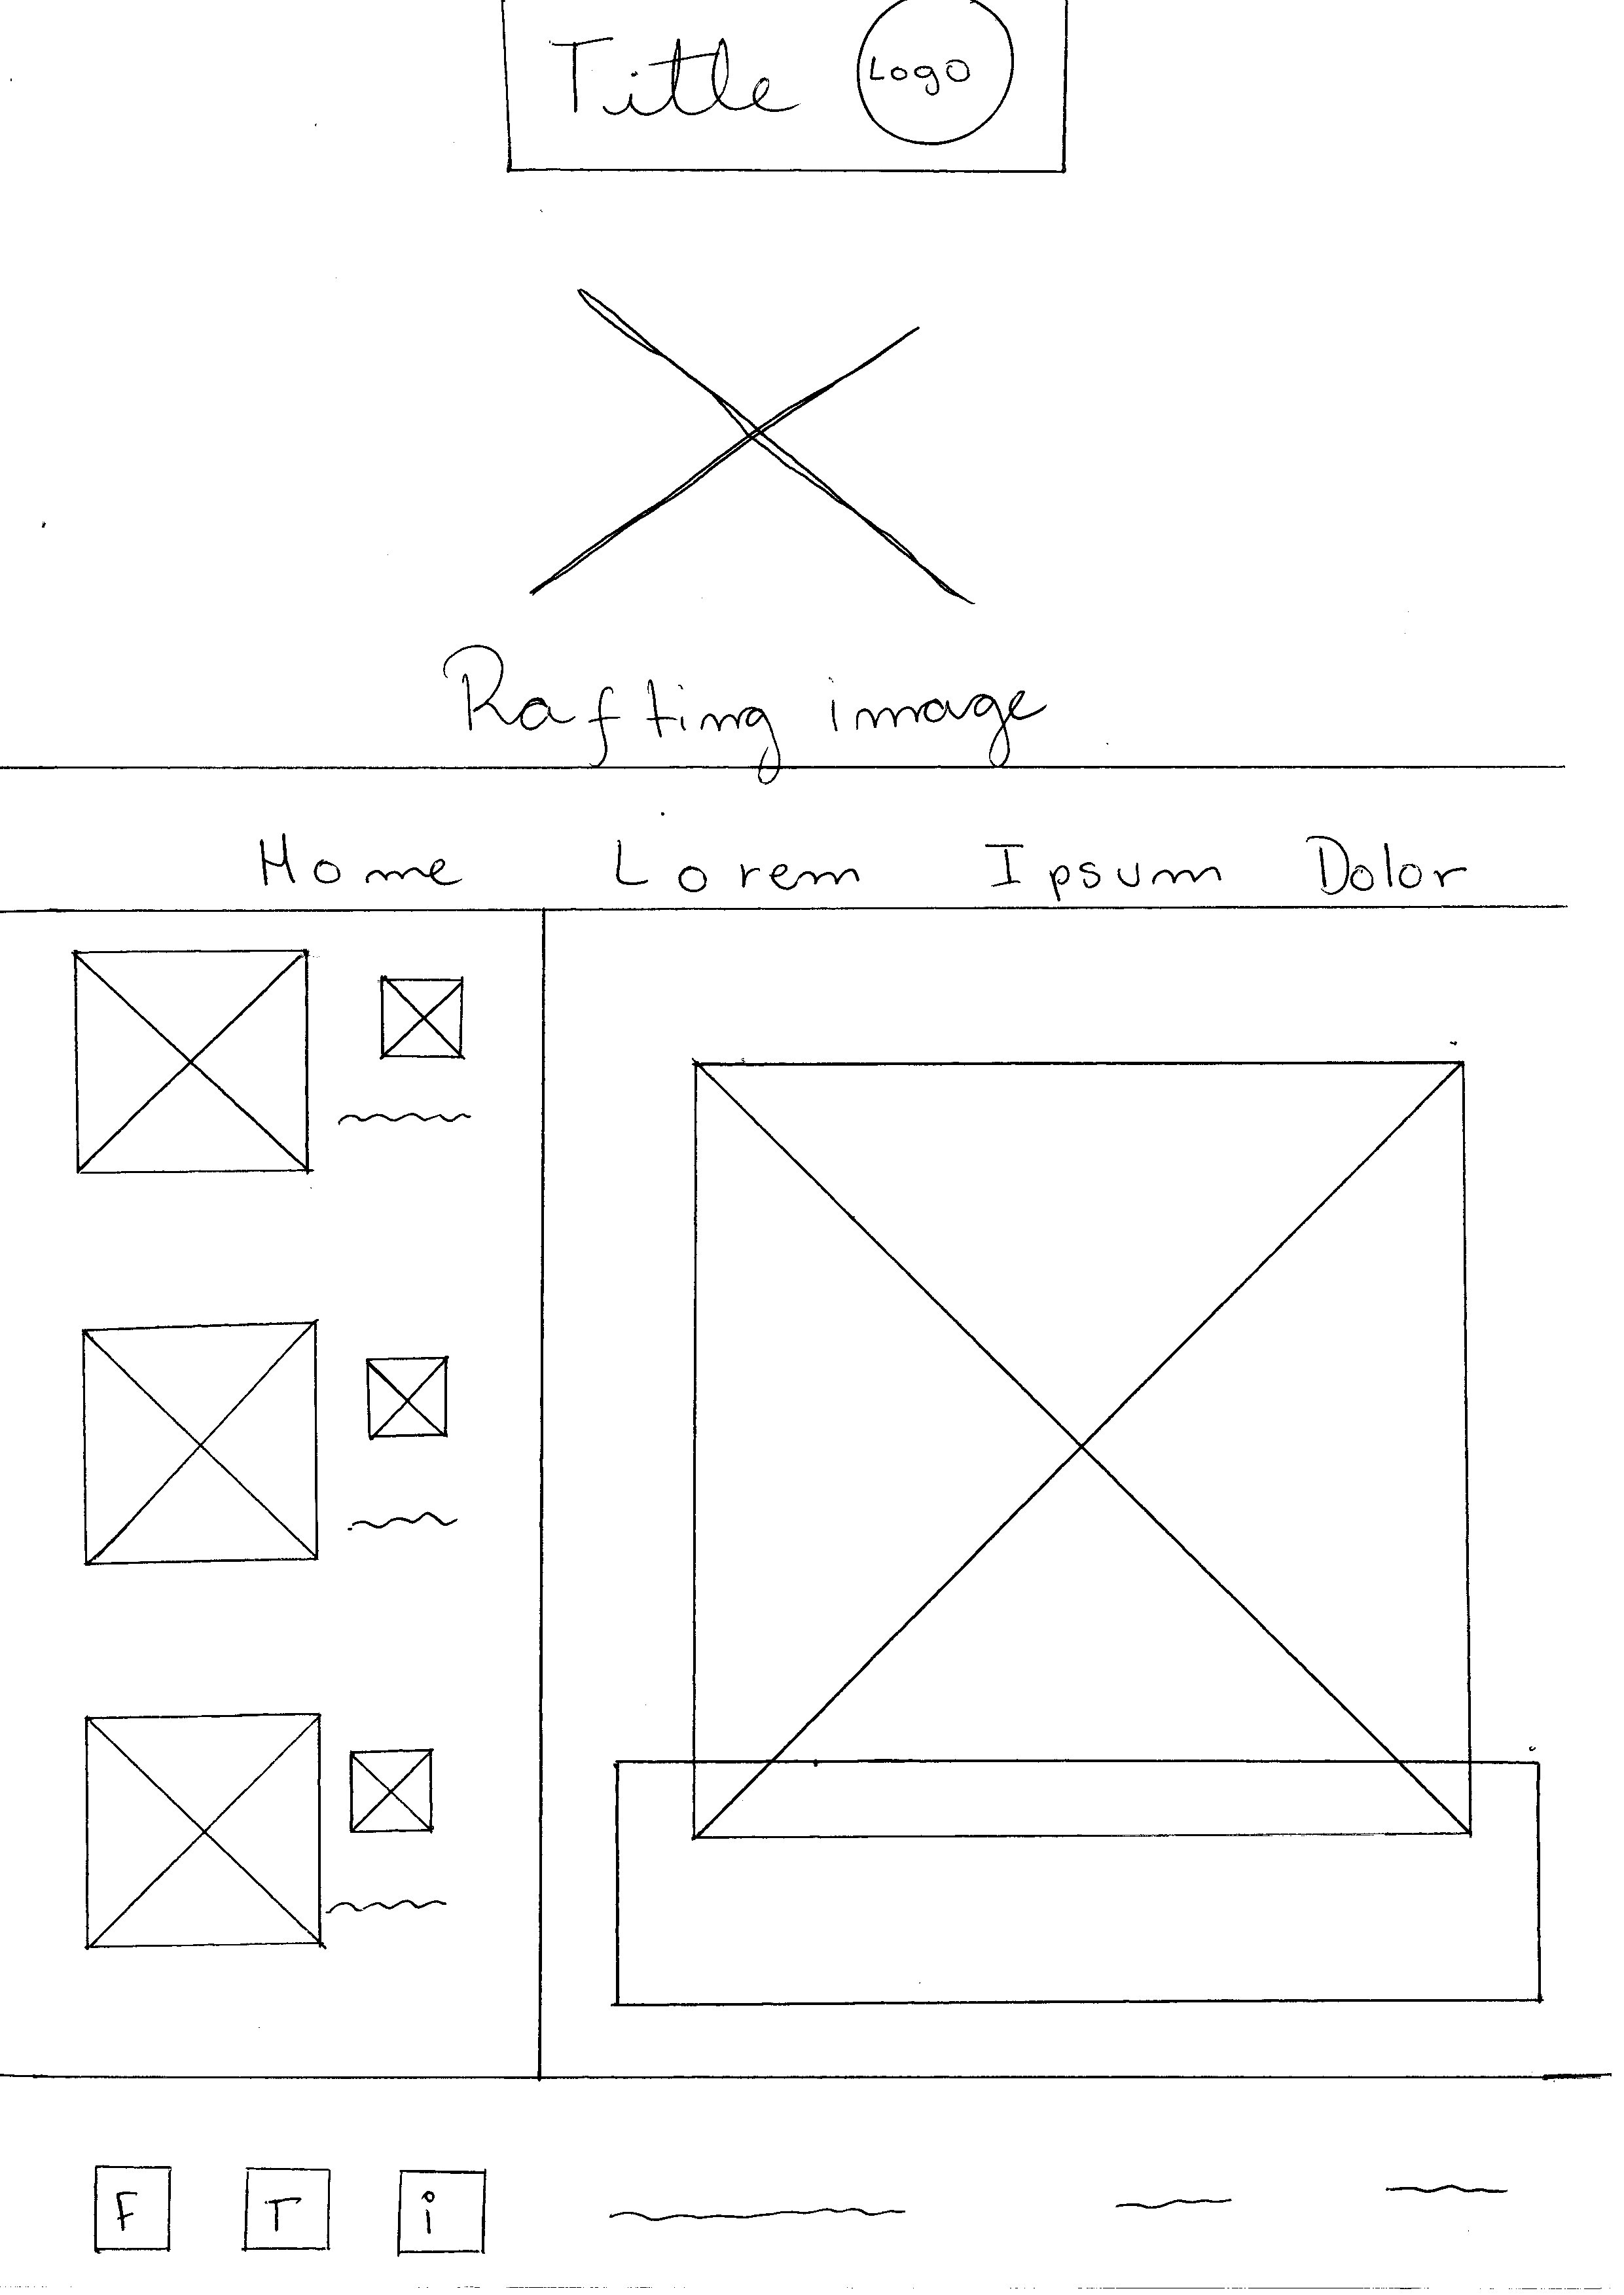 Title Logo
Rafting image
Home Lorem Ipsum Dolor
F T i